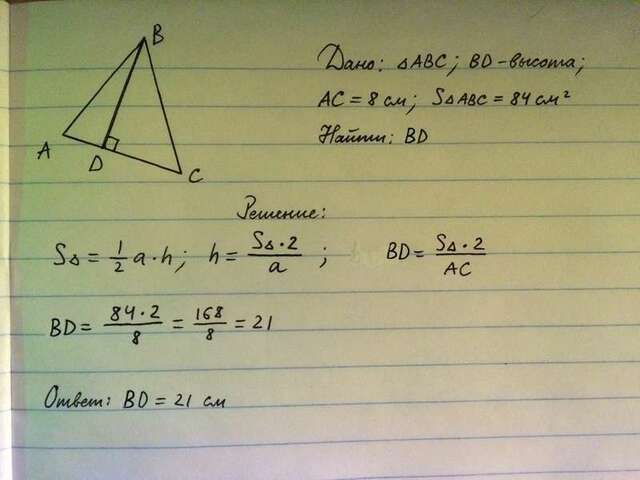 B
A
D
C
Дано: △ABC; BD-высота;
AC = 8 см; S△ABC = 84 см²
Найти: BD
Решение:
S△ = 1/2 a·h; h = S△·2/a ; BD = S△·2/AC
BD = 84·2/8 = 168/8 = 21
Ответ: BD = 21 см